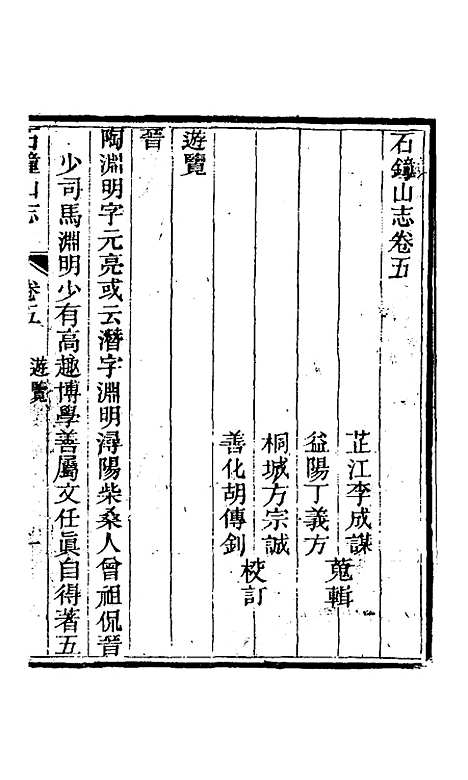 石鐘山志卷五
芷江李成謀
益陽丁義方
蒐輯
桐城方宗誠
善化胡傳釗
校訂
遊覽
晉
陶淵明字元亮或云潛字淵明潯陽柴桑人曾祖侃晉
少司馬淵明少有高趣博學善屬文任眞自得著五
石鐘山志
卷五
遊覽
一